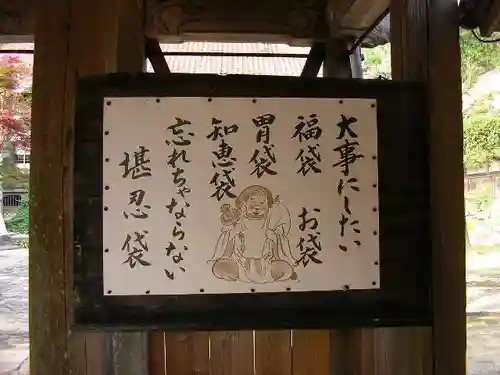 大事にしたい
福袋 お袋
胃袋
知恵袋
忘れちゃならない
堪忍袋